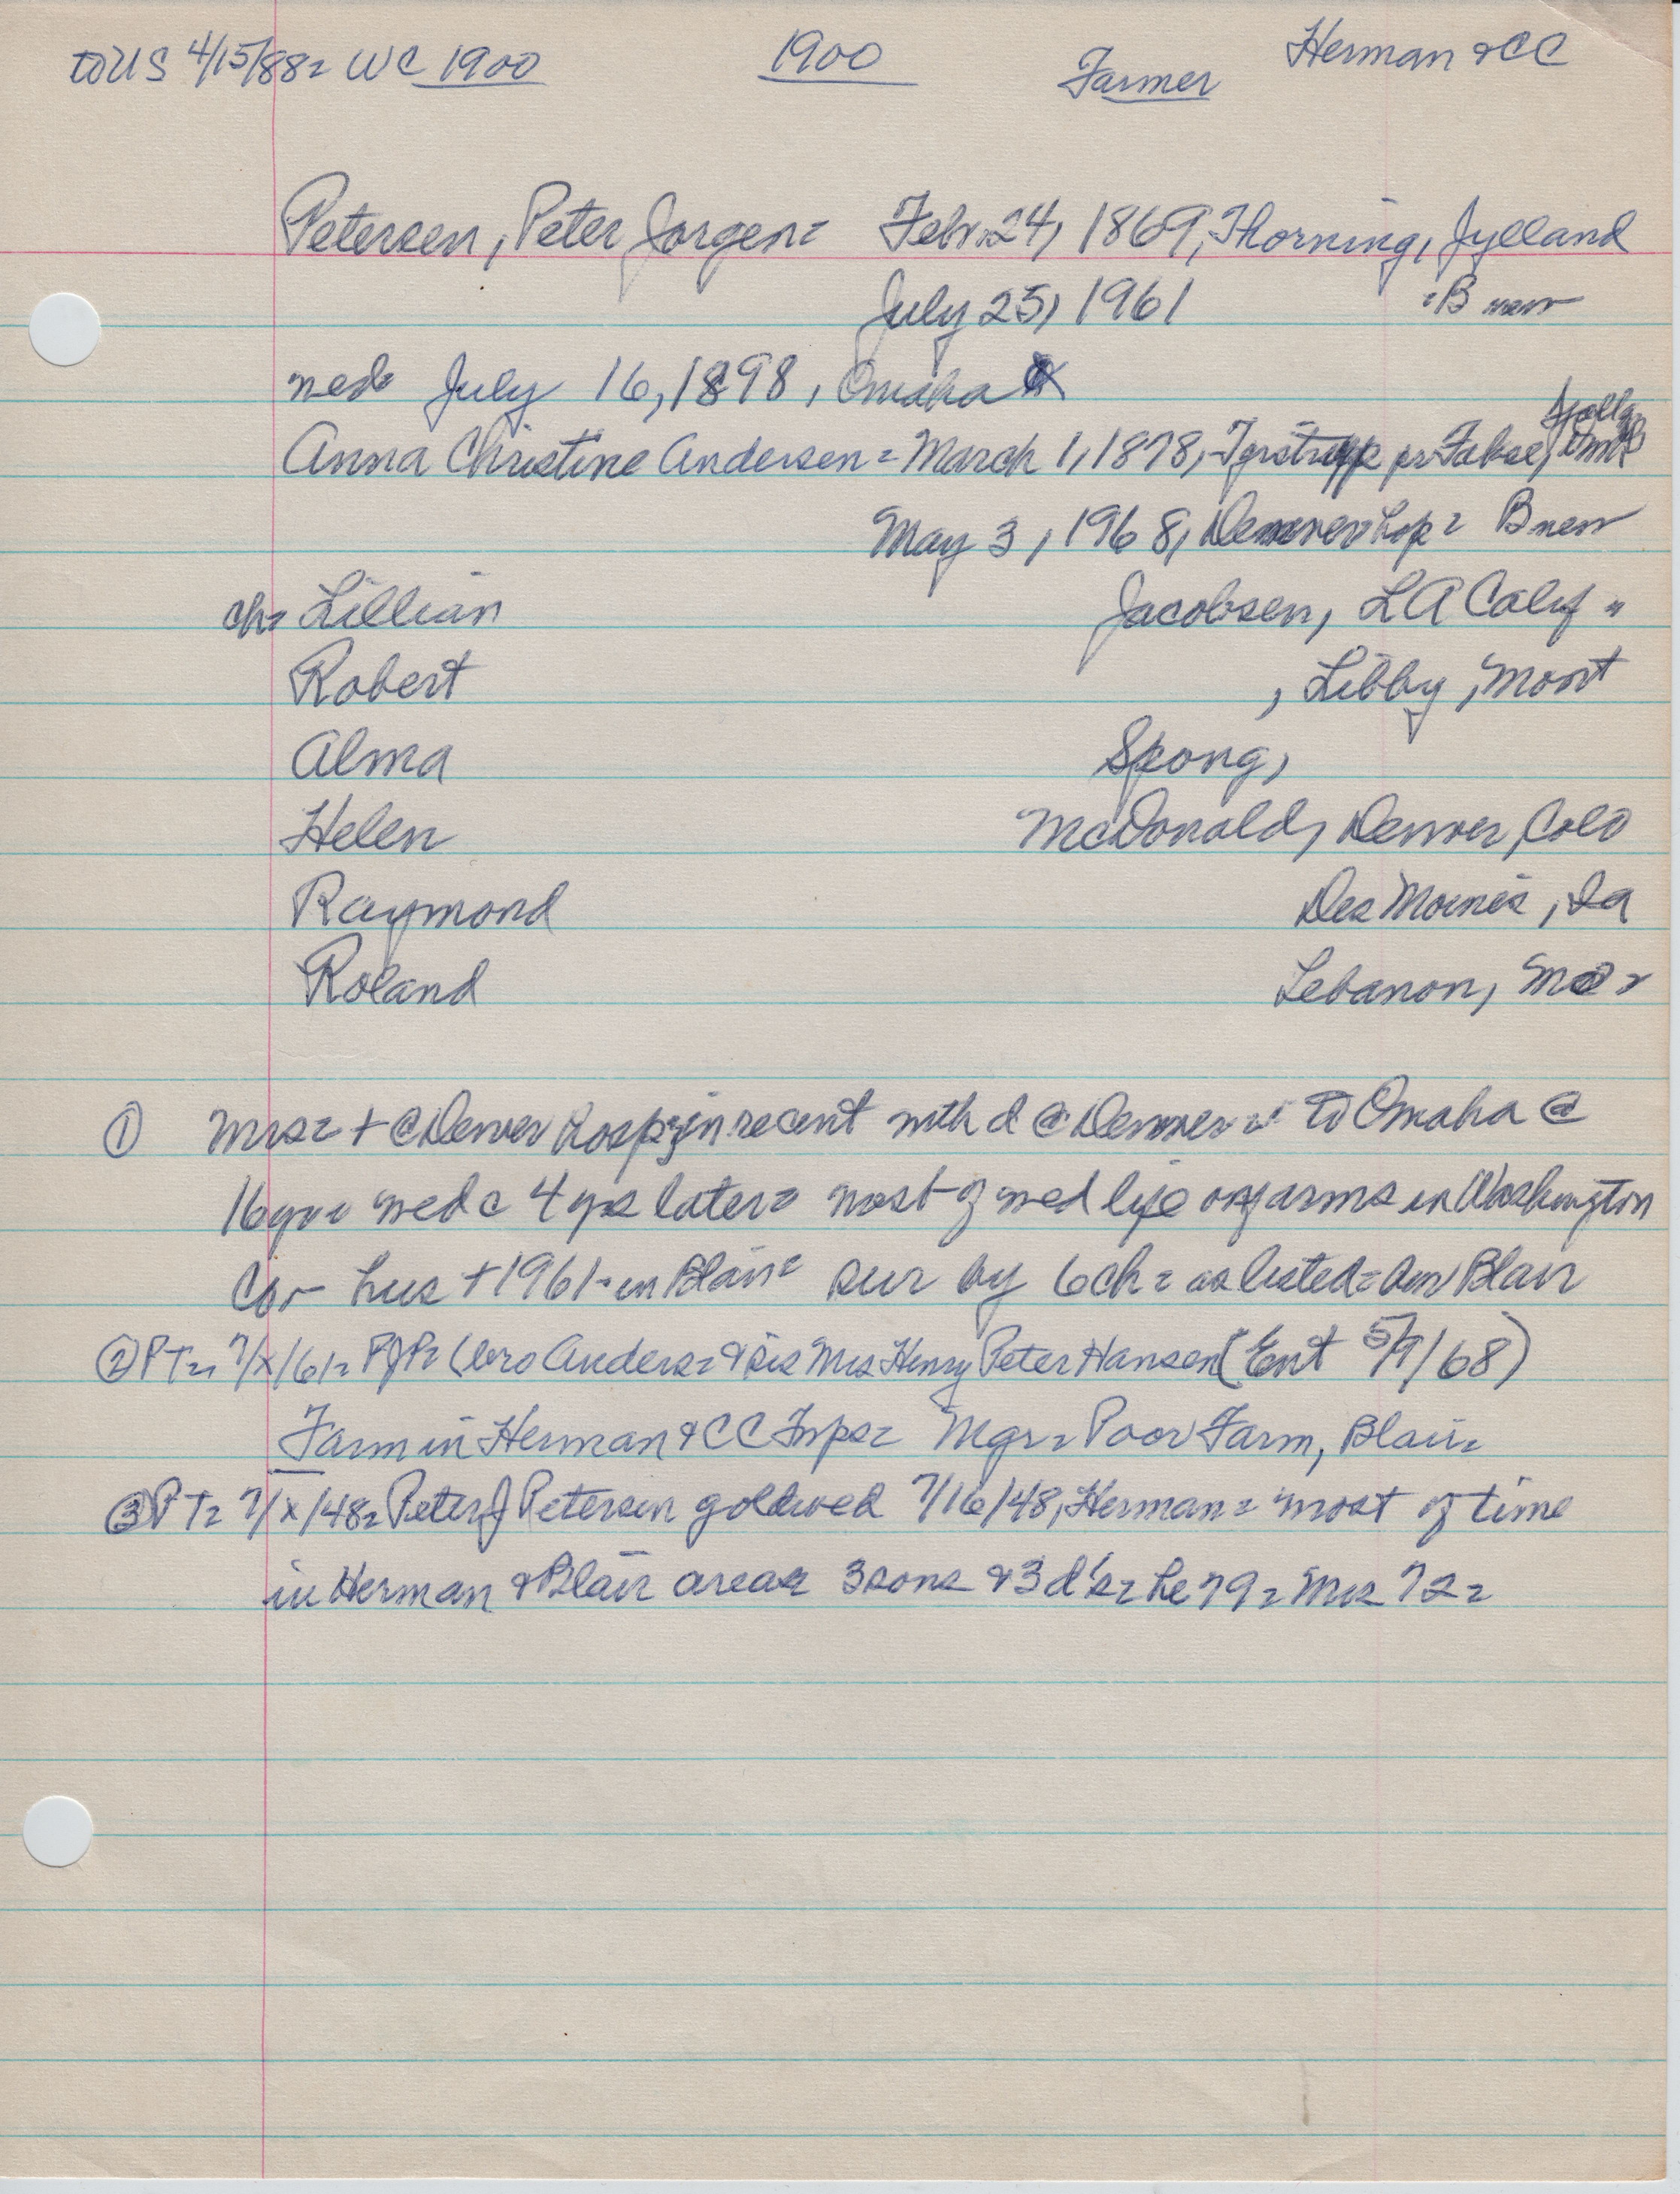 to US 4/15/88= WC 1900 1900 Farmer Herman & CC
Petersen, Peter Jorgen= Febr. 24, 1869, Thorning, Jylland
July 25, 1961 =B new
wed= July 16, 1898, Omaha
Anna Christine Andersen= March 1, 1878, pr Fakse,
May 3, 1968, Denver hop= B new
ch= Lillian Jacobsen, LA Calif "
Robert , Libby, Mont
Alma Spong,
Helen McDonald, Denver, Colo
Raymond Des Moines, Ia
Roland Lebanon, Mo=
① Mrs= + @ Denver hosp= in recent with d @ Denver = to Omaha @
16 yr= wed c 4 yrs later= most of wed life on farms in Washington
Co= hus + 1961= in Blair= sur by 6 ch= as listed= Blair
② PT= 7/x/61= PJP= (bro Anders= & sis Mrs Henry Peter Hansen (Ent 5/9/68)
Farm in Herman & CC Twps= Mgr= Poor Farm, Blair=
③ PT= 7/x/48= Peter J Petersen goldwed 7/16/48, Herman= most of time
in Herman & Blair areas 3 sons & 3 d's= he 79= Mrs 72=